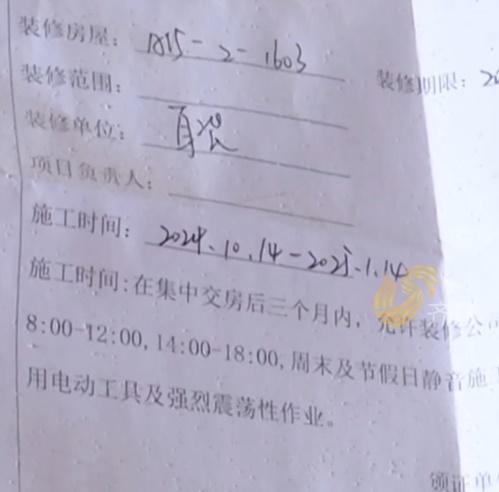 装修房屋: 1815-2-1603
装修期限: 20
装修范围:
装修单位: 自装
项目负责人:
施工时间: 2024.10.14-2025.1.14
施工时间:在集中交房后三个月内,允许装修公司
8:00-12:00,14:00-18:00,周末及节假日静音施工
用电动工具及强烈震荡性作业。
领证单